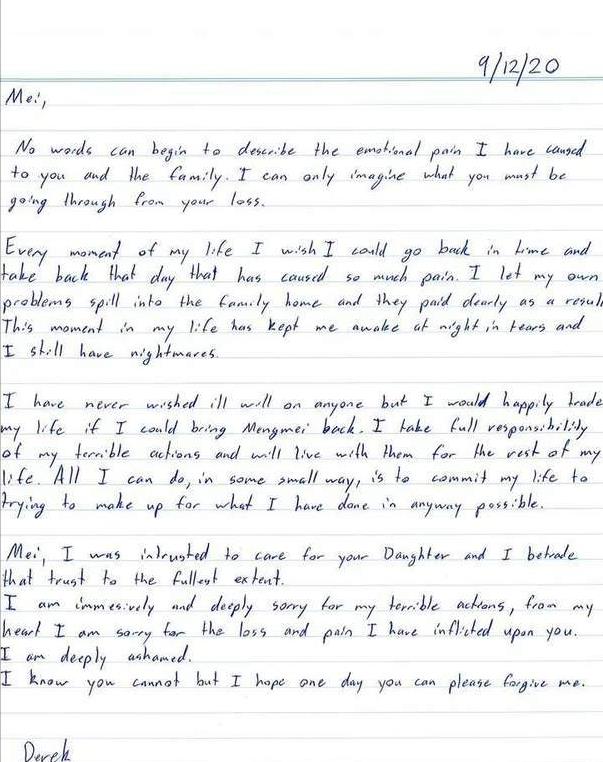 9/12/20
Mei,
No words can begin to describe the emotional pain I have caused
to you and the family. I can only imagine what you must be
going through from your loss.
Every moment of my life I wish I could go back in time and
take back that day that has caused so much pain. I let my own
problems spill into the family home and they paid dearly as a result
This moment in my life has kept me awake at night in tears and
I still have nightmares.
I have never wished ill will on anyone but I would happily trade
my life if I could bring Mengmei back. I take full responsibility
of my terrible actions and will live with them for the rest of my
life. All I can do, in some small way, is to commit my life to
trying to make up for what I have done in anyway possible.
Mei, I was intrusted to care for your Daughter and I betrade
that trust to the fullest extent.
I am immesively and deeply sorry for my terrible actions, from my
heart I am sorry for the loss and pain I have inflicted upon you.
I am deeply ashamed.
I know you cannot but I hope one day you can please forgive me.
Derek